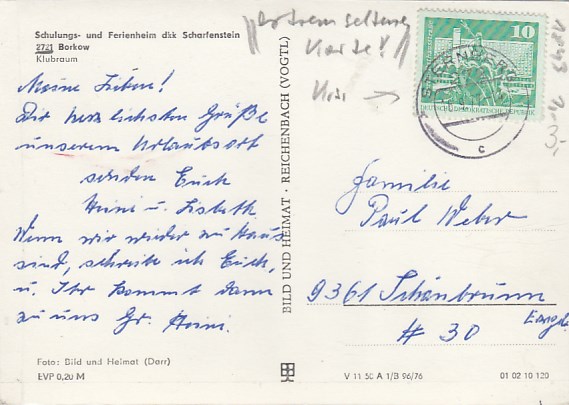 Schulungs- und Ferienheim dkk Scharfenstein
2721 Borkow
Klubraum
Meine Lieben!
Die herzlichsten Grüße
unserem Urlaubsort
senden Euch
Heini u. Lisbeth
Wenn wir wieder zu Haus
sind, schreibe ich Euch,
u. Ihr kommt dann
zu uns Gr. Heini.
Foto: Bild und Heimat (Darr)
EVP 0,20 M
BILD UND HEIMAT · REICHENBACH (VOGTL)
extrem seltene
Karte!
10
DEUTSCHE DEMOKRATISCHE REPUBLIK
STERNBERG
c
3,-
Familie
Paul Weber
9361 Schönbrunn
# 30
V 11 50 A 1/B 96/76
01 02 10 120